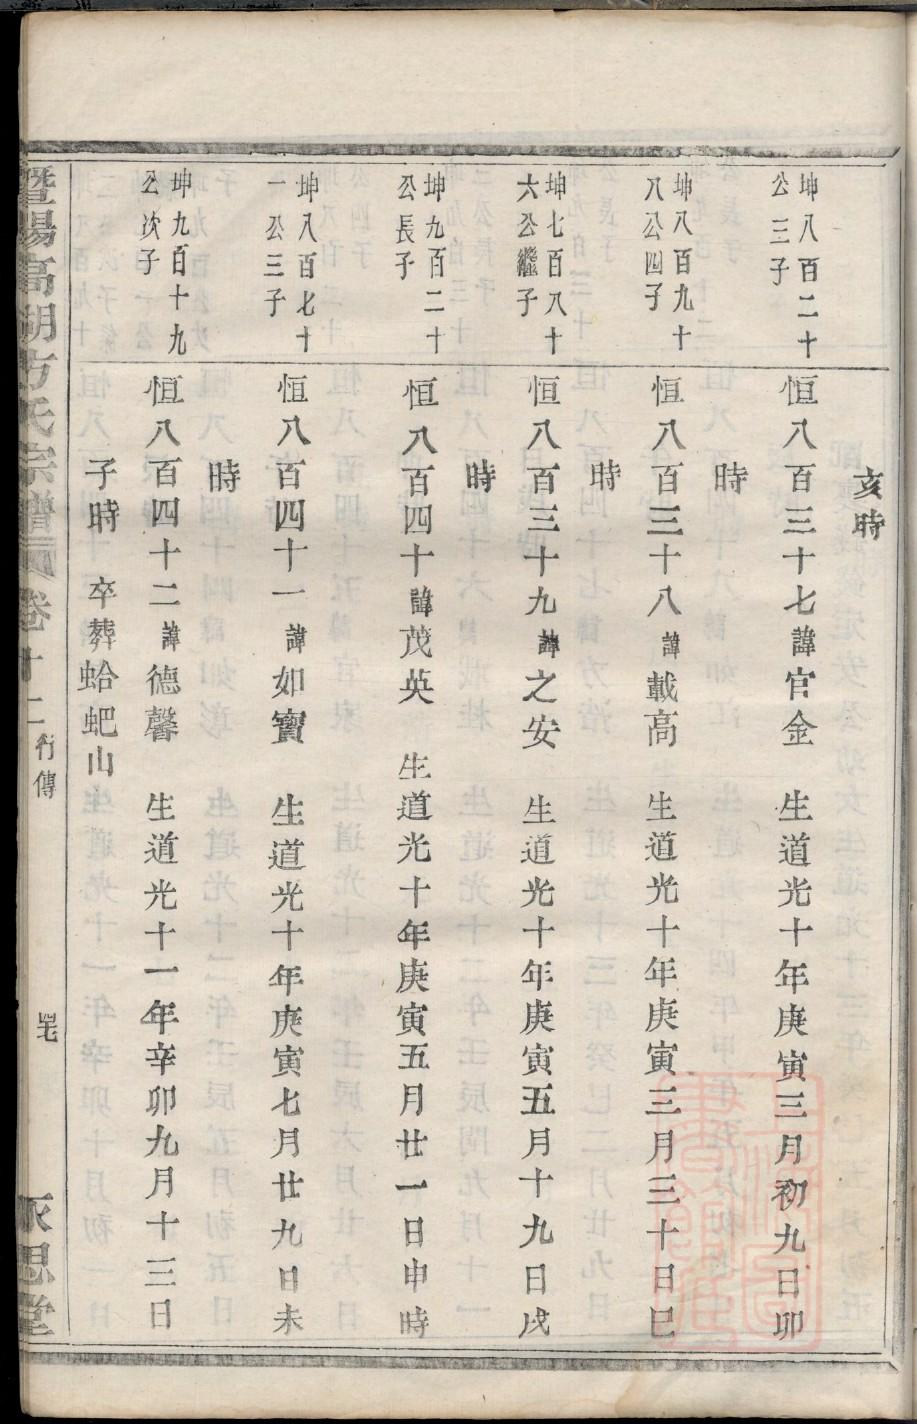 亥時
坤八百二十
公三子
恒八百三十七諱官金 生道光十年庚寅三月初九日卯
時
坤八百九十
八公四子
恒八百三十八諱載高 生道光十年庚寅三月三十日巳
時
坤七百八十
六公繼子
恒八百三十九諱之安 生道光十年庚寅五月十九日戌
時
坤九百二十
公長子
恒八百四十諱茂英 生道光十年庚寅五月廿一日申時
坤八百七十
一公三子
恒八百四十一諱如寶 生道光十年庚寅七月廿九日未
時
坤九百十九
公次子
恒八百四十二諱德馨 生道光十一年辛卯九月十三日
子時 卒葬蛤蚆山
暨陽高湖方氏宗譜 卷十二 行傳 永思堂